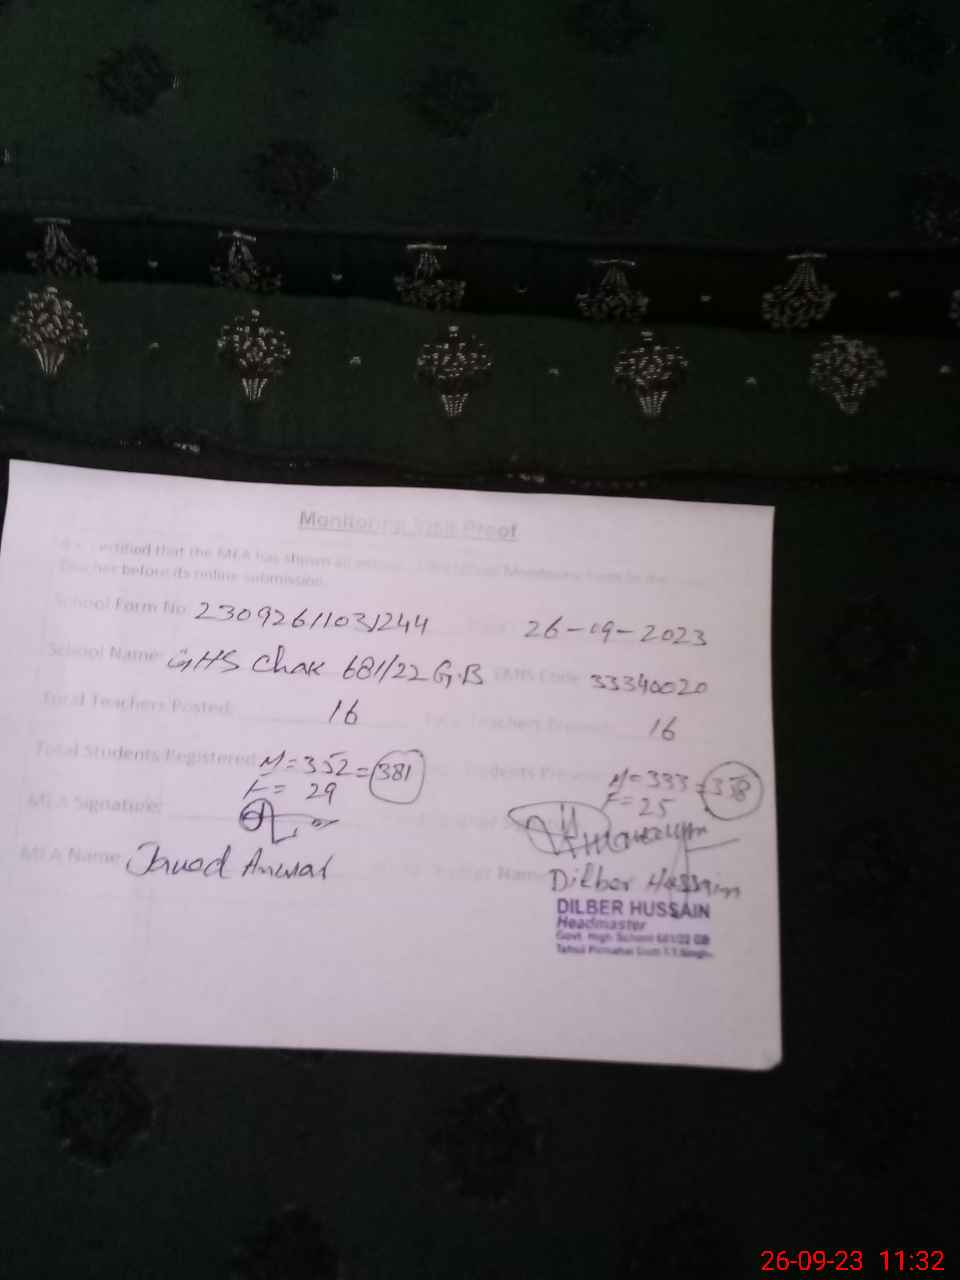 Monitoring Visit Proof
certified that the MEA has shown all Monitoring Form to the
Teacher before its online submission.
School Form No 23092611031244 26-09-2023
School Name: GHS Chak 681/22 G.B EMIS Code 33340020
Total Teachers Posted: 16 Teachers Present: 16
Total Students Registered M=352=381 Students Present M=333=358
F=29 F=25
MEA Signature:
MEA Name: Javed Anwar Name Dilber Hussain
DILBER HUSSAIN
Headmaster
Govt. High School 681/22 GB
Tehsil Pirmahal Distt T.T.Singh.
26-09-23 11:32